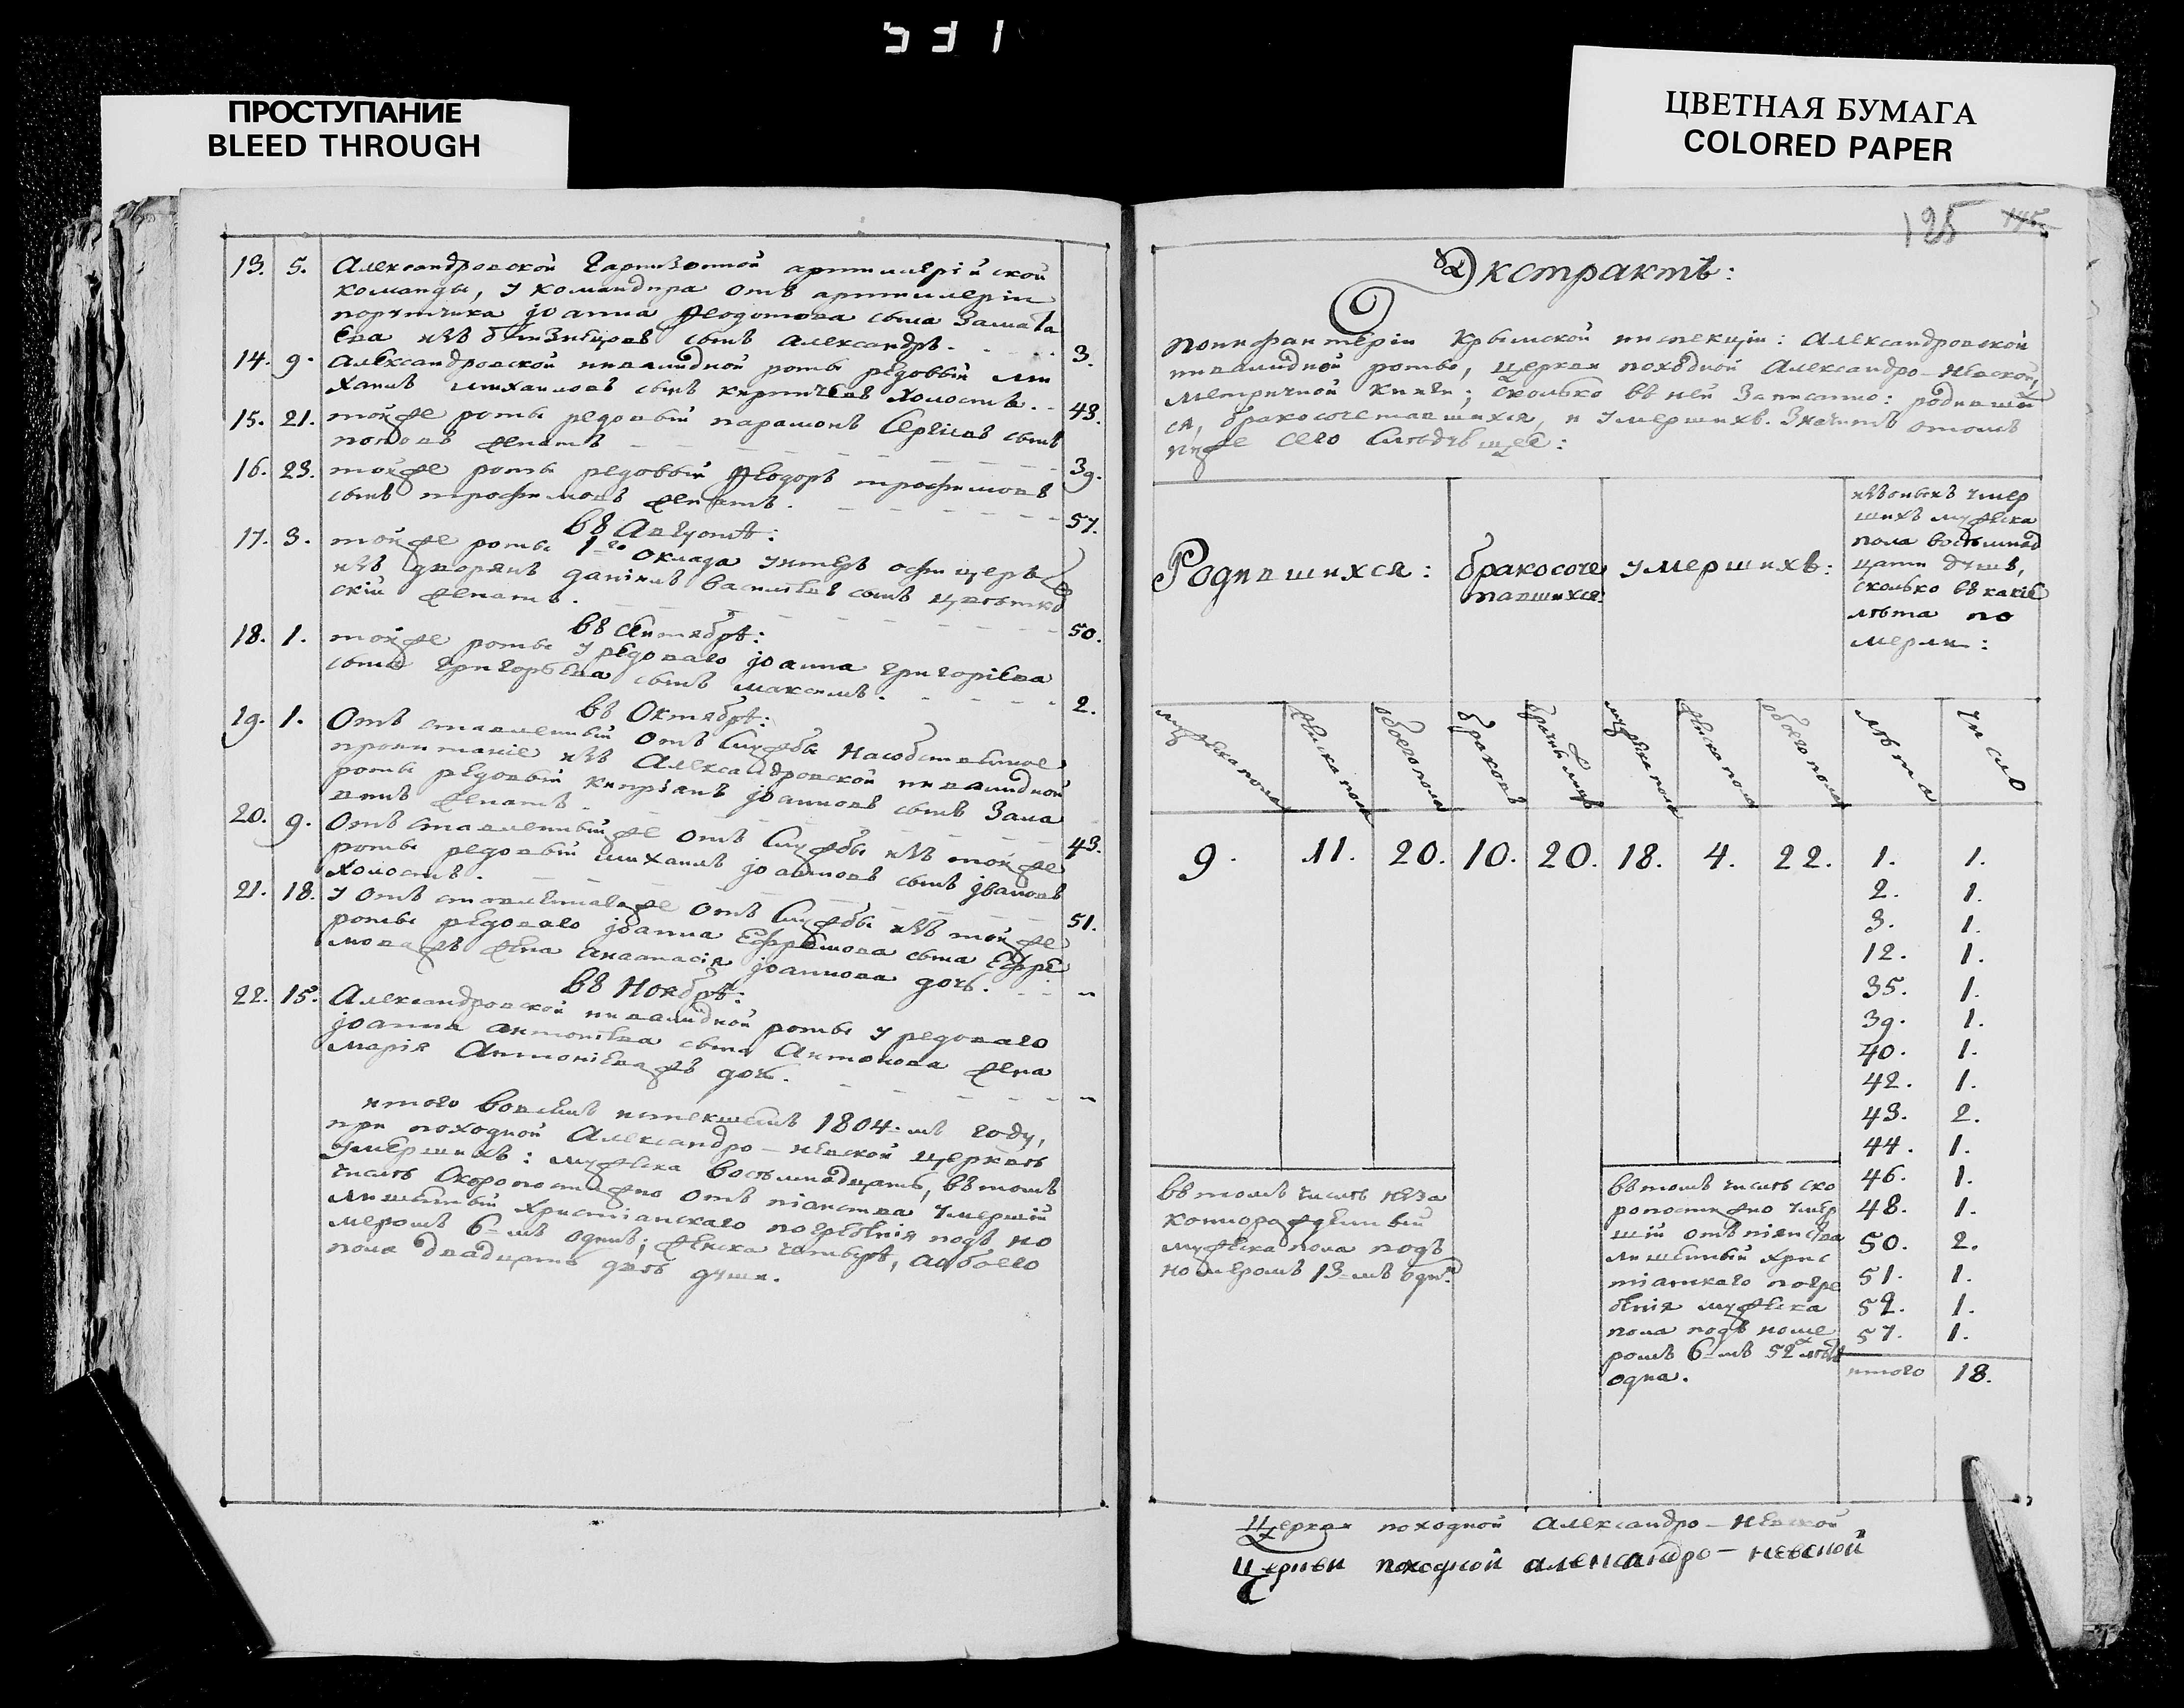 531
ПРОСТУПАНИЕ
BLEED THROUGH
ЦВЕТНАЯ БУМАГА
COLORED PAPER
13. 5. Александровской гарнизонной артиллерійской
команды, у командира отъ артиллеріи
порутчика Іоанна Ѳеодотова сына
сынъ Александръ. 3.
14. 9. Александровской инвалидной роты редовый Ми
хаилъ Михаиловъ сынъ Кирпичевъ холостъ. 43.
15. 21. той же роты редовый Парамонъ Сергіевъ сынъ
Поповъ женатъ 39.
16. 23. той же роты редовый Ѳеодоръ Трофимовъ
сынъ Трофимовъ женатъ. 57.
въ Августѣ:
17. 3. той же роты 1го оклада унтеръ офицеръ
изъ дворянъ Даніилъ Васильевъ сынъ Цвѣтков
скій женатъ. 50.
въ Сентябрѣ:
18. 1. той же роты у редоваго Іоанна Григоріева
сына Григорьева сынъ Максимъ. 2.
въ Октябрѣ:
19. 1. Отъ ставленный отъ службы насобственное
пропитаніе изъ Александровской инвалидной
роты редовый Кипріанъ Іоанновъ сынъ
женатъ. 43.
20. 9. Отъ ставленный же отъ службы изъ той же
роты редовый Михаилъ Іоанновъ сынъ Івановъ
холостъ. 51.
21. 18. у Отъ ставленнаго же отъ службы изъ той же
роты редоваго Іоанна Ефремова сына Ефре
мова жъ жена Анастасія Іоаннова дочь. "
въ Ноябрѣ:
22. 15. Александровской инвалидной роты у редоваго
Іоанна Антоніева сына Антонова жена
Марія Антоніева жъ дочь. "
итого вовсемъ истекшемъ 1804-мъ году,
при походной Александро-Невской церквѣ
умершихъ: мужеска восемнадцать, въ томъ
числѣ скоропостижно отъ піанства умершій
лишенный христіанскаго погребенія подъ но
меромъ 6-мъ одинъ; женска четыре, аобоего
пола двадцать двѣ души.
125
Экстрактъ:
поинфантеріи Крымской инспекціи: Александровской
инвалидной роты, церкви походной Александро-Невской,
метричной книги; сколько въ ней записано: родивши
ся, бракосочетавшихся, и умершихъ. Значитъ отомъ
ниже сего слѣдующее:
Родившихся: бракосоче умершихъ:
тавшихся:
изъоныхъ умер
шихъ мужеска
пола восемнад
цати душъ,
сколько въ какіе
лѣта по
мерли:
мужеска пола женска пола обоего пола браковъ брачных лицъ мужеска пола женска пола обоего пола лѣта число
9. 11. 20. 10. 20. 18. 4. 22. 1. 1.
2. 1.
3. 1.
12. 1.
35. 1.
39. 1.
40. 1.
42. 1.
43. 2.
44. 1.
46. 1.
48. 1.
50. 2.
51. 1.
52. 1.
57. 1.
итого 18.
въ томъ числѣ неза
коннорожденный
мужеска пола подъ
номеромъ 13-мъ один.
въ томъ числѣ ско
ропостижно умер
шій отъ піанства
лишенный хрис
тіанскаго погре
бенія мужеска
пола подъ номе
ромъ 6-мъ 52 лѣтъ
одна.
Церкви походной Александро-Невской
Церкви походной александро-невской